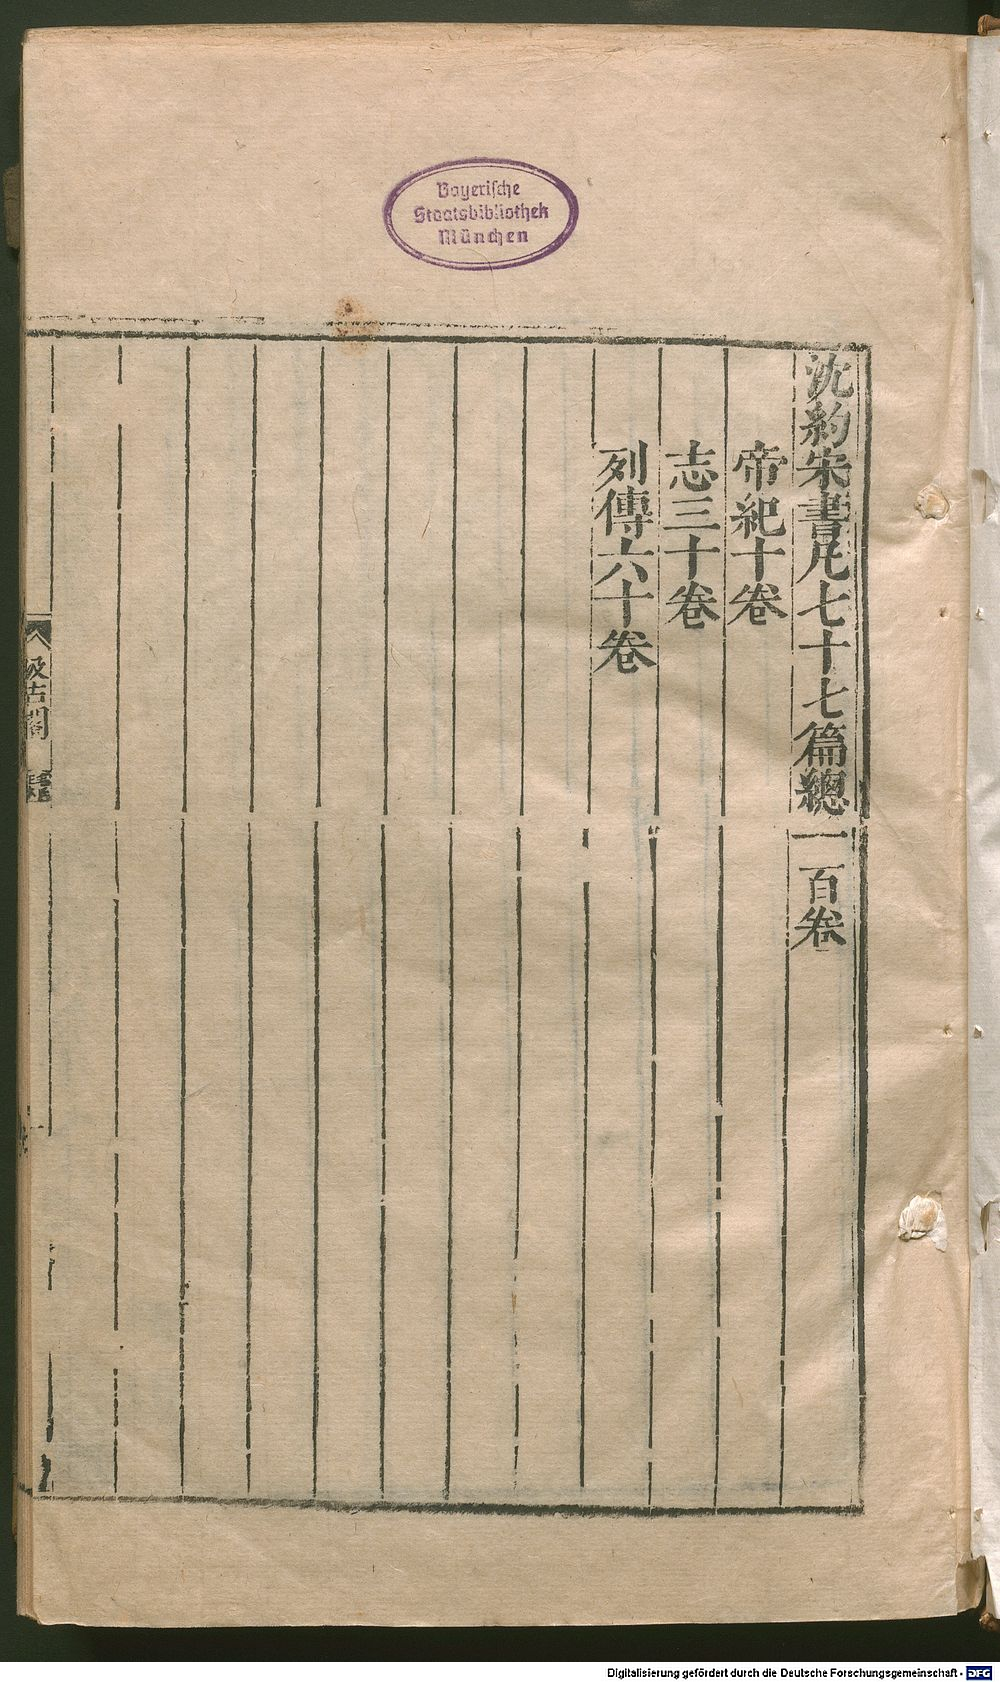 Bayerische
Staatsbibliothek
München
沈約宋書凡七十七篇總一百卷
帝紀十卷
志三十卷
列傳六十卷
汲古閣
Digitalisierung gefördert durch die Deutsche Forschungsgemeinschaft - DFG